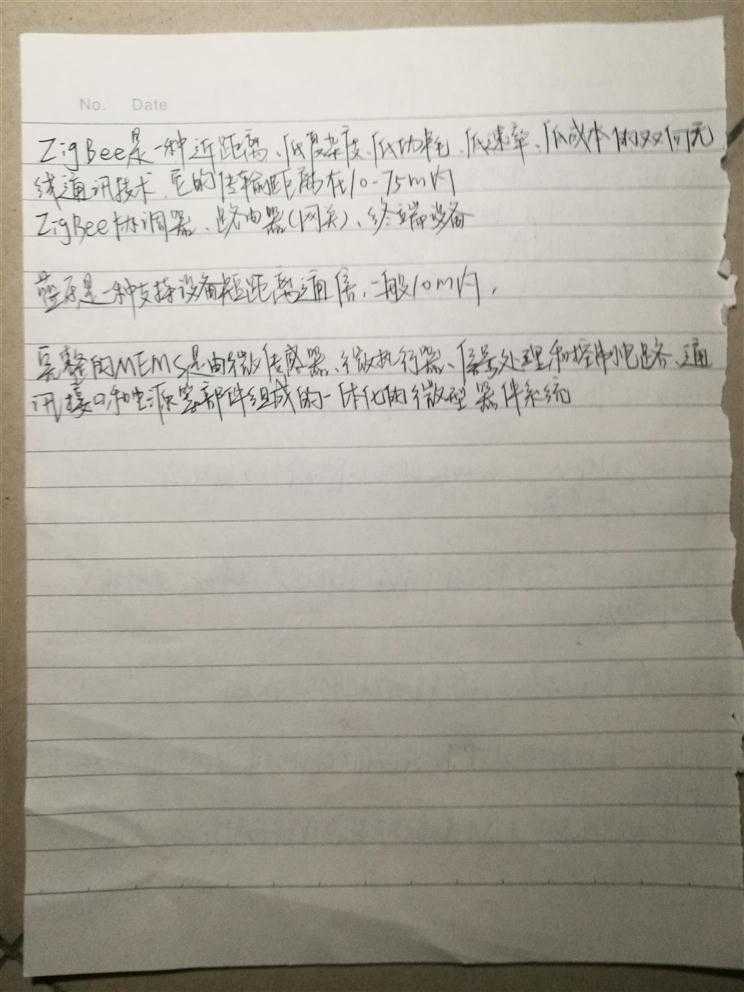 No. Date
ZigBee是一种近距离、低复杂度、低功耗、低速率、低成本的双向无
线通讯技术,它的传输距离在10-75m内
ZigBee协调器、路由器(网关)、终端设备
蓝牙是一种支持设备短距离通信,一般10m内,
完整的MEMS是由微传感器、微执行器、信号处理和控制电路、通
讯接口和电源等部件组成的一体化的微型器件系统